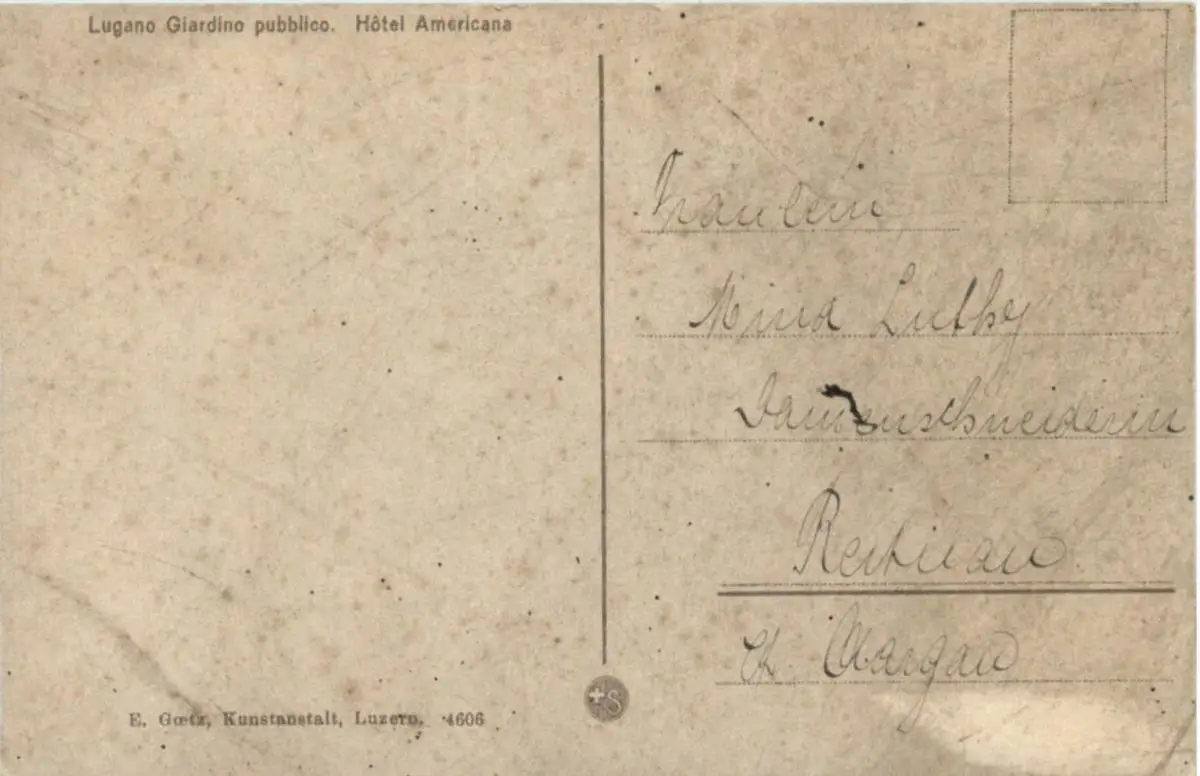 Lugano Giardino pubblico. Hôtel Americana
Fräulein
Mina Lüthy
Damenschneiderin
Reitnau
Kt. Aargau
E. Gœtz, Kunstanstalt, Luzern. 4606
+S